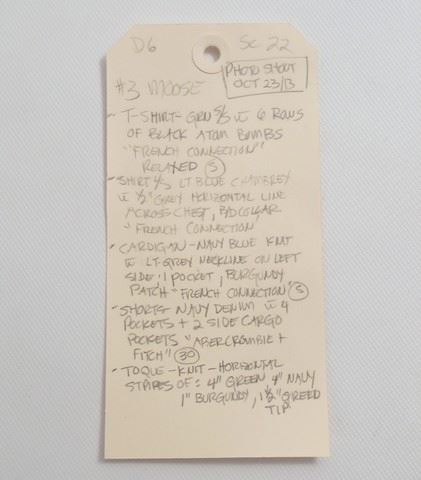 D6 Sc 22
PHOTO SHOOT
OCT 23/13
#3 MOOSE
- T-SHIRT - GRN S/S w 6 ROWS
OF BLACK ATOM BOMBS
"FRENCH CONNECTION"
RELAXED (S)
- SHIRT L/S LT BLUE CHAMBREY
w 1/2" GREY HORIZONTAL LINE
ACROSS CHEST, B/D COLLAR
"FRENCH CONNECTION"
- CARDIGAN - NAVY BLUE KNIT
w LT. GREY NECKLINE ON LEFT
SIDE, 1 POCKET, BURGUNDY
PATCH "FRENCH CONNECTION" (S)
- SHORTS - NAVY DENIM w 4
POCKETS + 2 SIDE CARGO
POCKETS "ABERCROMBIE +
FITCH" (30)
- TOQUE - KNIT - HORIZONTAL
STRIPES OF: 4" GREEN 4" NAVY
1" BURGUNDY, 1 1/2" GREED
TIP